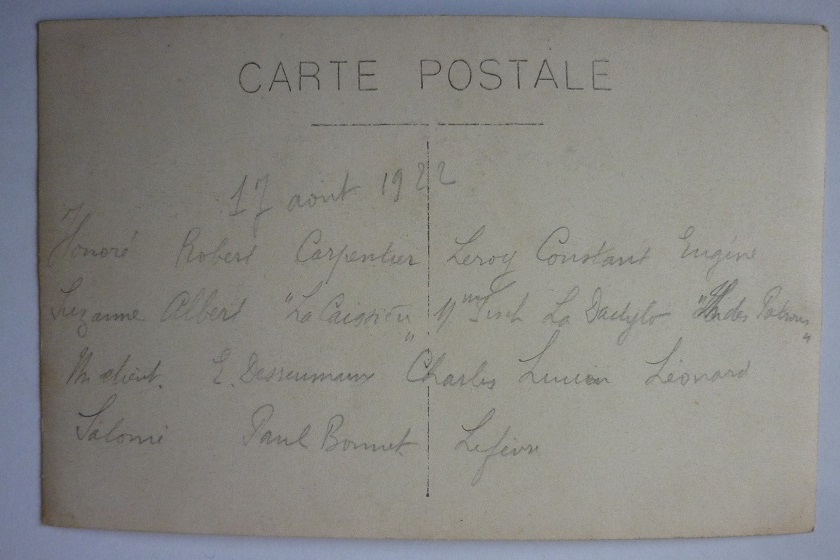 CARTE POSTALE
17 août 1922
Honoré Robert Carpentier Leroy Constant Eugène
Suzanne Albert "La Caissière" Mme La Dactylo "Un des Patrons"
Un client. E. Desseumaux Charles Lucien Léonard
Salomé Paul Bonnet Lefèvre